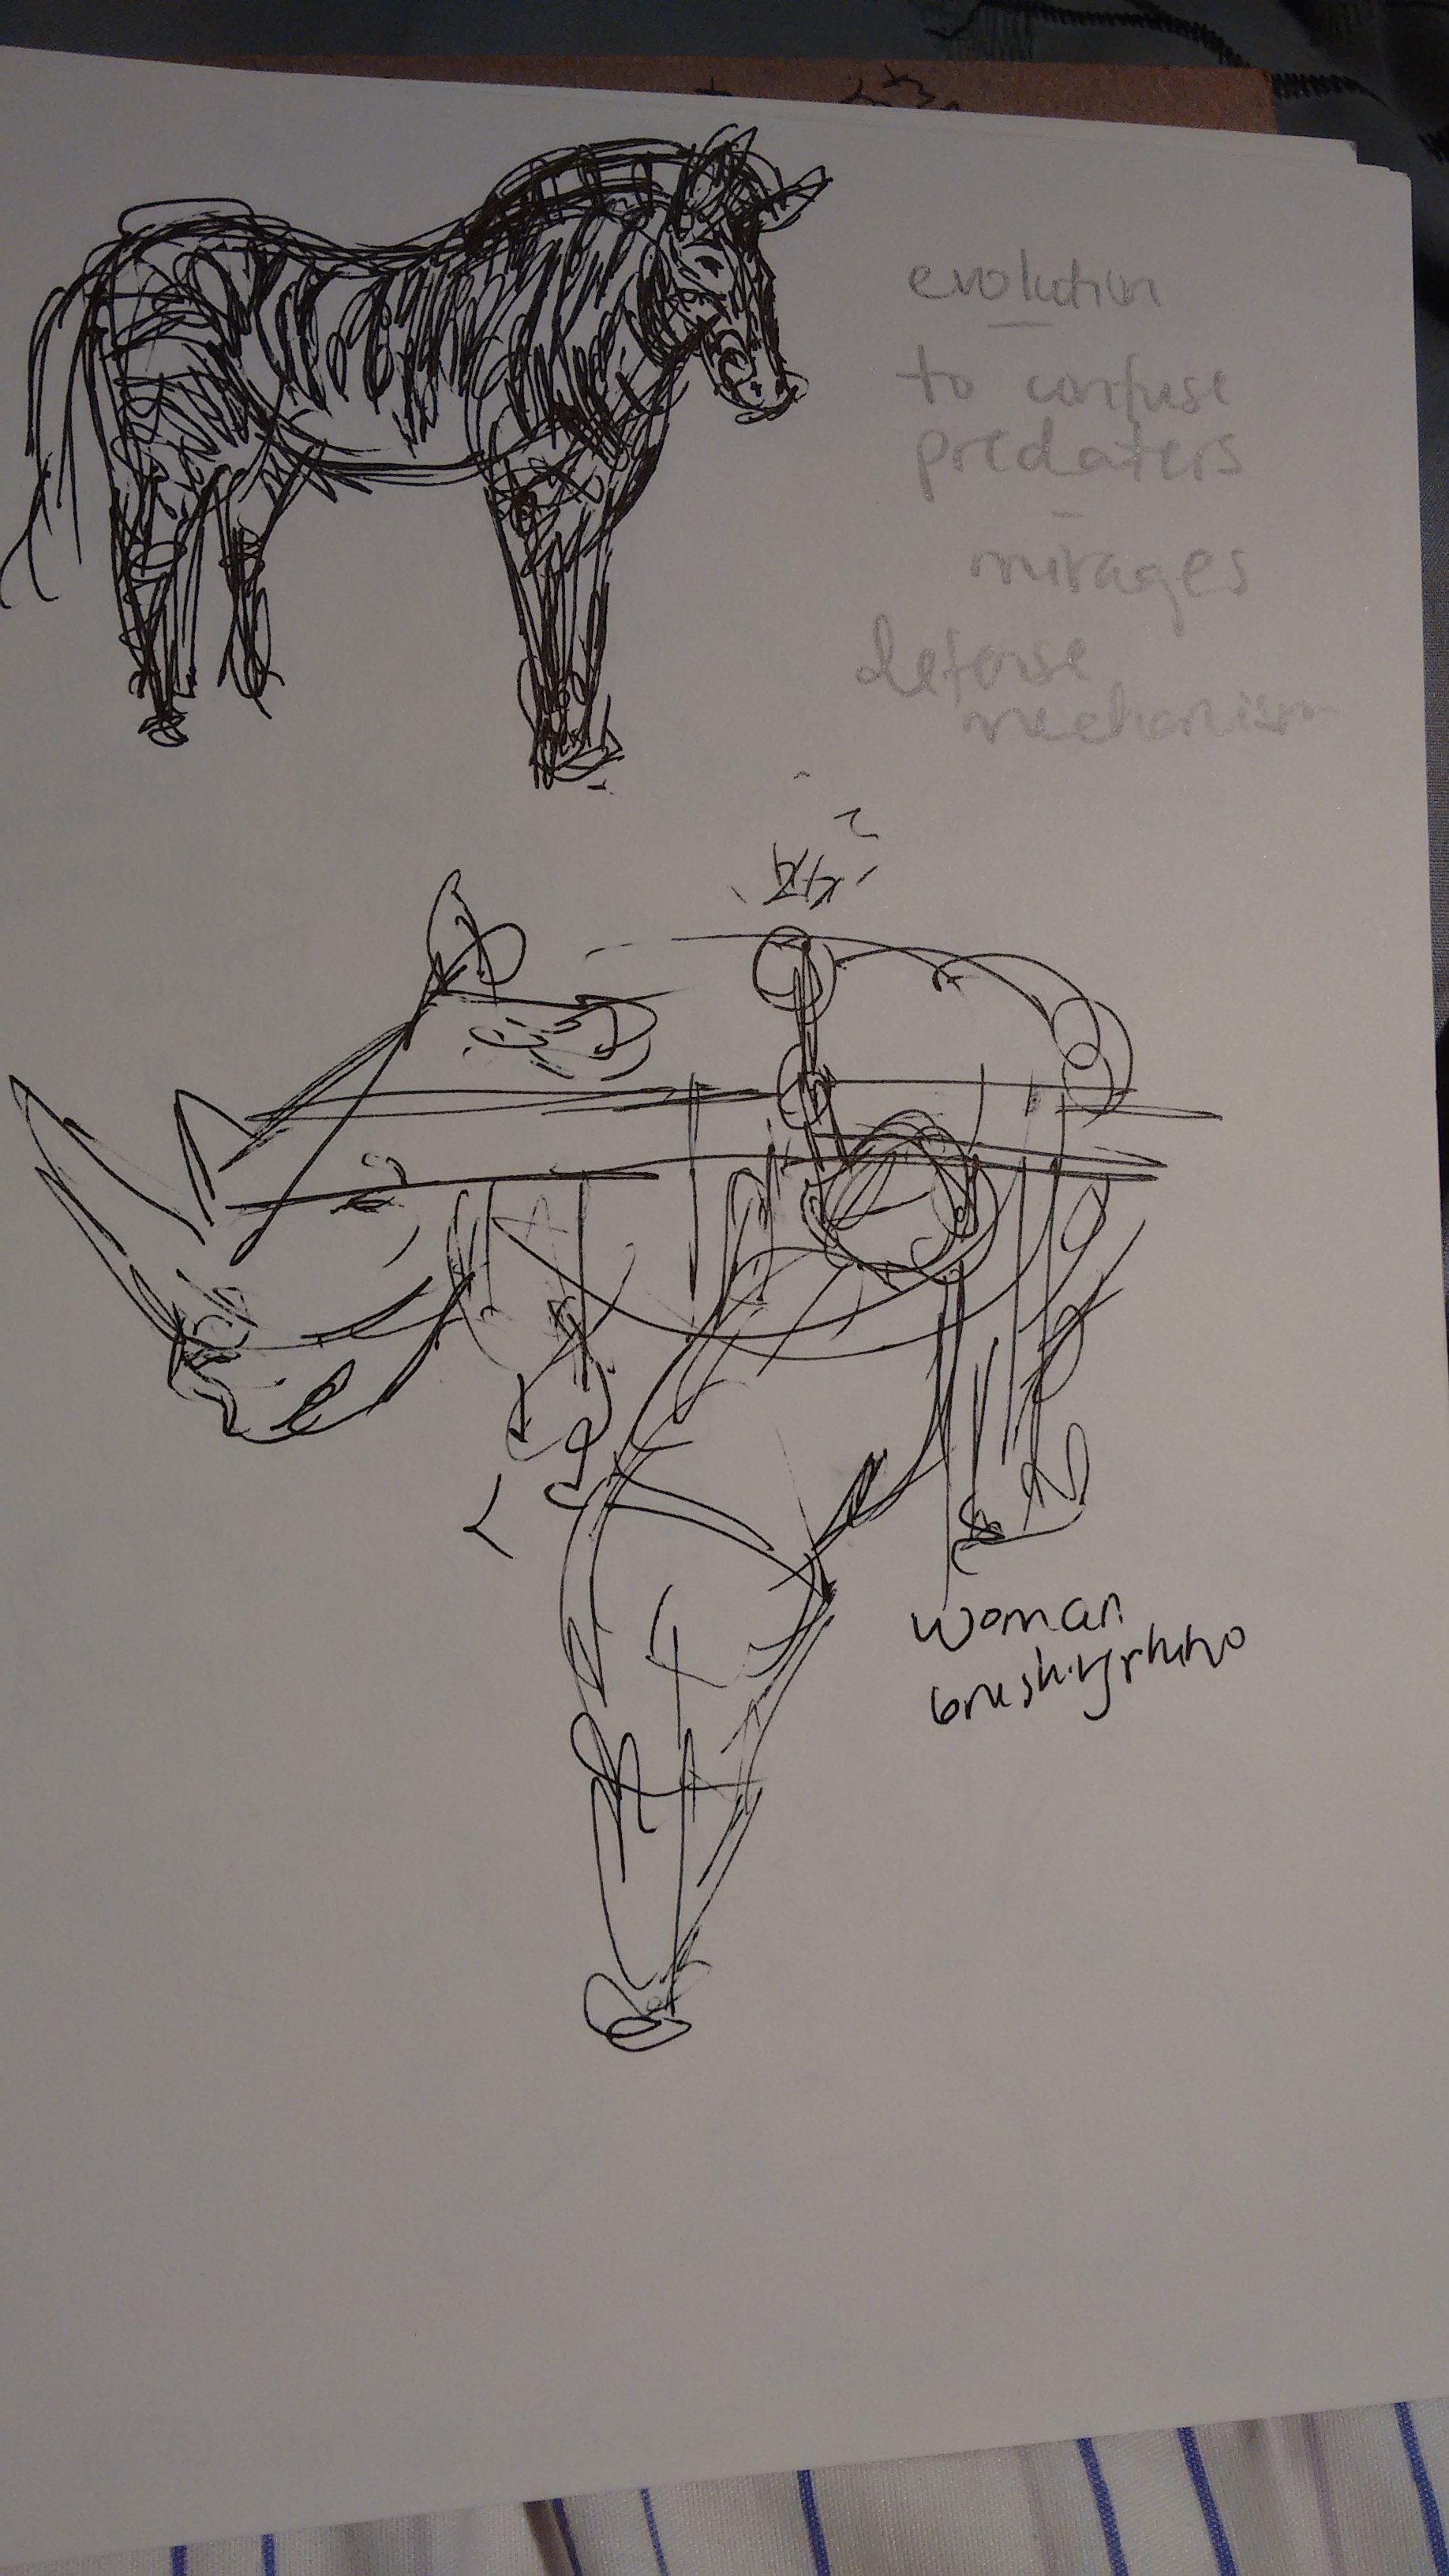 evolution
to confuse
predaters
mirages
defense
mechanism
woman
brushing rhino